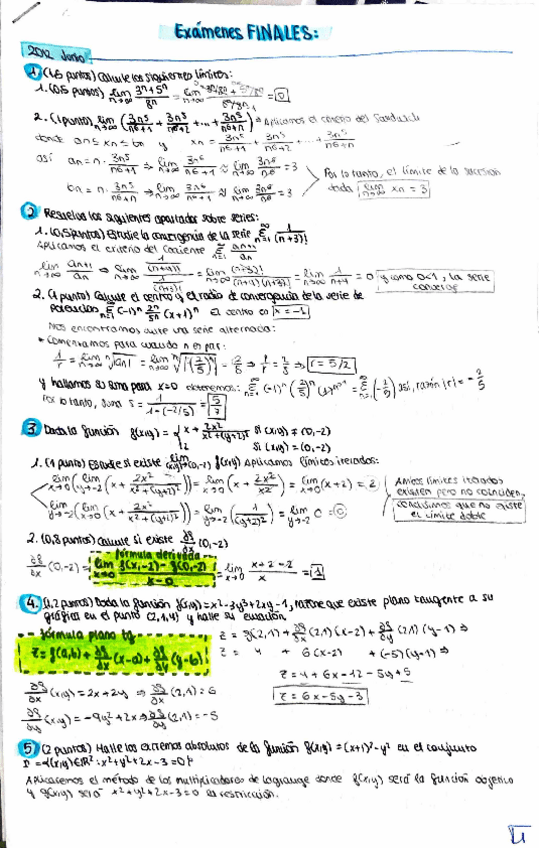 Exámenes FINALES:
2012 Junio
1. (1,5 puntos) Calcule los siguientes límites:
1. (0,5 puntos) lim n→∞ (3^n + 5^n)/8^n = lim n→∞ = 0
2. (1 punto) lim n→∞ (3n^5/(n^6+1) + 3n^5/(n^6+2) + ... + 3n^5/(n^6+n)) = Aplicamos el criterio del Sandwich
donde an ≤ xn ≤ bn y xn = 3n^5/(n^6+1) + 3n^5/(n^6+2) + ... + 3n^5/(n^6+n)
así an = n · 3n^5/(n^6+1) ⇒ lim n→∞ 3n^6/(n^6+1) ≈ lim n→∞ 3n^6/n^6 = 3
bn = n · 3n^5/(n^6+n) ⇒ lim n→∞ 3n^6/(n^6+n) ≈ lim n→∞ 3n^6/n^6 = 3
Por lo tanto, el límite de la sucesión
dada lim n→∞ xn = 3
2 Resuelva los siguientes apartados sobre series:
1. (0,5 puntos) Estudie la convergencia de la serie ∑ n=1 ∞ 1/(n+3)!
Aplicamos el criterio del Cociente ∑ n=1 ∞ an+1/an
lim n→∞ an+1/an ⇒ lim n→∞ (1/(n+4)!)/(1/(n+3)!) = lim n→∞ (n+3)!/((n+4)(n+3)!) = lim n→∞ 1/(n+4) = 0 y como 0<1, la serie
converge
2. (1 punto) Calcule el centro y el radio de convergencia de la serie de
potencias ∑ n=1 ∞ (-1)^n 2^n/5^n (x+1)^n El centro es x = -1
Nos encontramos ante una serie alternada:
• Comenzamos para cuando n es par:
1/r = lim n→∞ ⁿ√|an| = lim n→∞ ⁿ√|(2/5)^n| = 2/5 ⇒ 1/r = 2/5 ⇒ r = 5/2
y hallamos su suma para x=0 obtenemos: ∑ n=1 ∞ (-1)^n (2/5)^n (1)^n = ∑ n=1 ∞ (-2/5) así, razón |r| = -2/5
Por lo tanto, suma S = 1/(1-(-2/5)) = 5/7
3 Dada la función f(x,y) = { x + 2x²/(x²+(y+2)²) si (x,y) ≠ (0,-2)
2 si (x,y) = (0,-2)
1. (1 punto) Estudie si existe lim (x,y)→(0,-2) f(x,y) Aplicamos límites iterados:
lim x→0 (lim y→-2 (x + 2x²/(x²+(y+2)²))) = lim x→0 (x + 2x²/x²) = lim x→0 (x+2) = 2
lim y→-2 (lim x→0 (x + 2x²/(x²+(y+2)²))) = lim y→-2 (1/(y+2)²) = lim y→-2 0 = 0
Ambos límites iterados
existen pero no coinciden,
concluimos que no existe
el límite doble
2. (0,8 puntos) Calcule si existe ∂f/∂x (0,-2)
fórmula derivada
∂f/∂x (0,-2) = lim x→0 (f(x,-2) - f(0,-2))/(x-0) = lim x→0 (x+2-2)/x = 1
4. (1,2 puntos) Dada la función f(x,y) = x²-3y³+2xy-1, razone que existe plano tangente a su
gráfica en el punto (2,1,4) y halle su ecuación.
fórmula plano tg
z = f(a,b) + ∂f/∂x (x-a) + ∂f/∂y (y-b)
z = f(2,1) + ∂f/∂x (2,1)(x-2) + ∂f/∂y (2,1)(y-1) ⇒
z = 4 + 6(x-2) + (-5)(y-1) ⇒
z = 4+6x-12-5y+5
z = 6x-5y-3
∂f/∂x (x,y) = 2x+2y ⇒ ∂f/∂x (2,1) = 6
∂f/∂y (x,y) = -9y²+2x ⇒ ∂f/∂y (2,1) = -5
5 (2 puntos) Halle los extremos absolutos de la función f(x,y) = (x+1)²-y² en el conjunto
= {(x,y)∈ℝ²: x²+y²+2x-3=0}
Aplicaremos el método de los multiplicadores de Lagrange donde f(x,y) será la función objetivo
y g(x,y) será x²+y²+2x-3=0 la restricción.